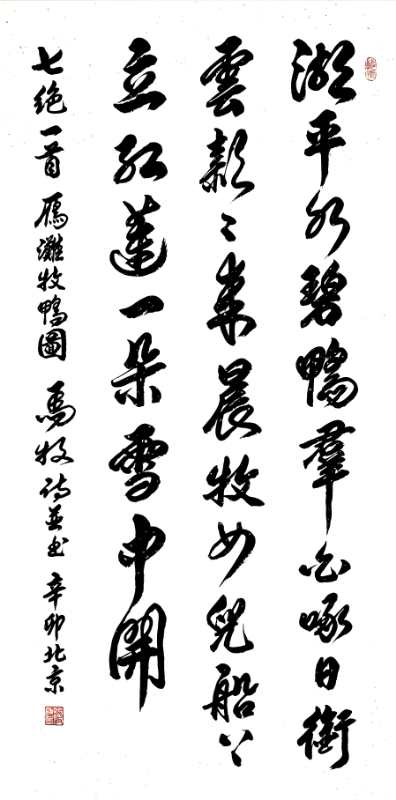 湖平水碧鴨羣白啄日銜
雲款〻來晨牧女兒船上
立紅蓮一朵雪中開
七绝一首 鴈灘牧鴨圖 馬牧诗並书 辛卯北京